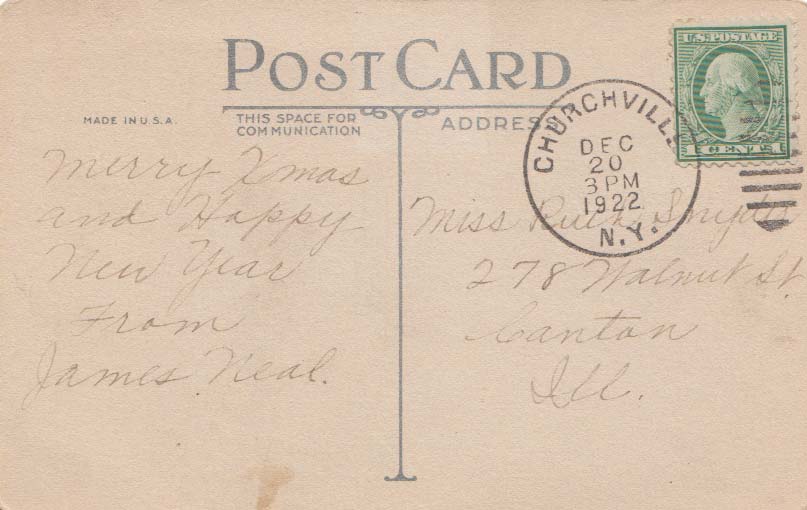 POST CARD
MADE IN U.S.A.
THIS SPACE FOR
COMMUNICATION
ADDRESS
U.S. POSTAGE
1 CENT 1
CHURCHVILLE
DEC
20
3 PM
1922
N.Y.
Merry Xmas
and Happy
New Year
From
James Neal.
Miss Ruth Snyder
278 Walnut St.
Canton
Ill.